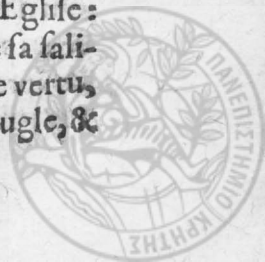 Egliſe :
ſa ſali-
e vertu,
ugle, &
ΠΑΝΕΠΙΣΤΗΜΙΟ ΚΡΗΤΗΣ